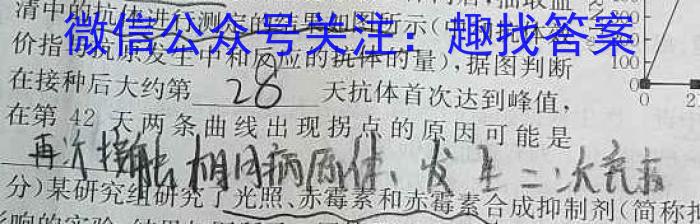 清中的抗体进行测定的结果如图所示(
微信公众号关注：趣找答案
价指与抗原发生中和反应的抗体的量),据图判断
100
在接种后大约第 28 天抗体首次达到峰值,
0 2
在第 42 天两条曲线出现拐点的原因可能是
再次接触相同病原体、发生二次免疫
分)某研究组研究了光照、赤霉素和赤霉素合成抑制剂(简称